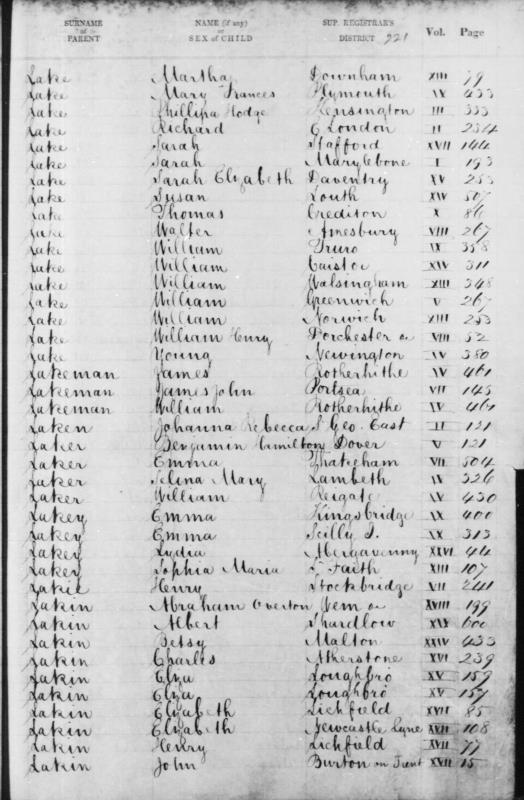 SURNAME of PARENT NAME (if any) or SEX of CHILD SUP. REGISTRAR'S DISTRICT 221 Vol. Page
Lake Martha Downham XIII 79
Lake Mary Frances Plymouth IX 433
Lake Phillipa Hodge Kensington III 333
Lake Richard E London II 234
Lake Sarah Stafford XVII 144
Lake Sarah Marylebone I 193
Lake Sarah Elizabeth Daventry XV 253
Lake Susan Louth XIV 507
Lake Thomas Crediton X 86
Lake Walter Amesbury VIII 267
Lake William Truro IX 358
Lake William Caistor XIV 311
Lake William Walsingham XIII 348
Lake William Greenwich V 267
Lake William Norwich XIII 253
Lake William Henry Dorchester &c VIII 52
Lake Young Newington IV 380
Lakeman James Rotherhithe IV 461
Lakeman James John Portsea VII 145
Lakeman William Rotherhithe IV 461
Laken Johanna Rebecca St Geo. East II 121
Laker Benjamin Hamilton Dover V 121
Laker Emma Thakeham VII 504
Laker Selina Mary Lambeth IV 326
Laker William Reigate IV 430
Lakey Emma Kingsbridge IX 400
Lakey Emma Scilly I. IX 313
Lakey Lydia Abergavenny XXVI 44
Lakey Sophia Maria St Faith XIII 107
Lakie Henry Stockbridge VII 241
Lakin Abraham Overton Wem &c XVIII 199
Lakin Albert Shardlow XIX 600
Lakin Betsy Malton XXIV 433
Lakin Charles Atherstone XVI 239
Lakin Eliza Loughbro XV 159
Lakin Eliza Loughbro XV 157
Lakin Elizabeth Lichfield XVII 85
Lakin Elizabeth Newcastle Lyne XVII 108
Lakin Henry Lichfield XVII 77
Lakin John Burton on Trent XVII 15